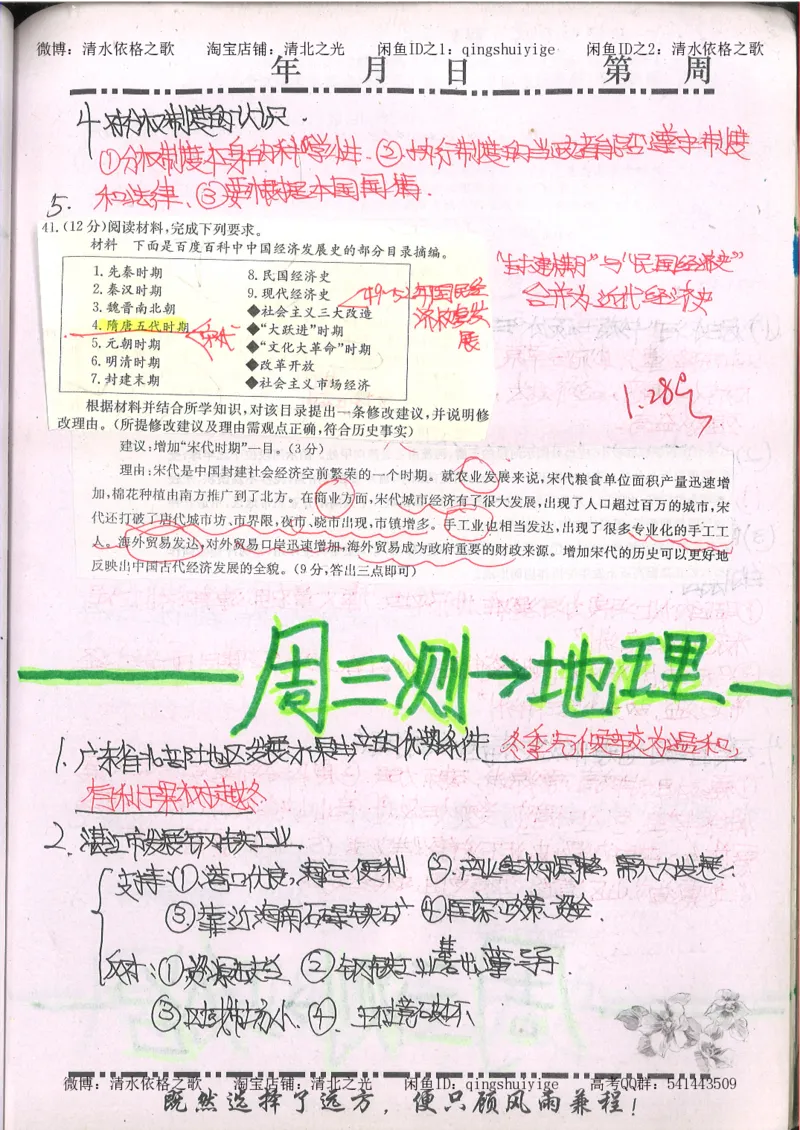 微博：清水依格之歌 淘宝店铺：清北之光 闲鱼ID之1：qingshuiyige 闲鱼ID之2：清水依格之歌
年 月 日 第 周
4. 对分权制度的认识.
①分权制度本身的科学性.②.执行制度的当政者能否遵守制度
和法律、③要根据本国国情.
5.
41.(12分)阅读材料,完成下列要求。
材料 下面是百度百科中中国经济发展史的部分目录摘编。
1.先秦时期 8.民国经济史
2.秦汉时期 9.现代经济史
3.魏晋南北朝 ◆社会主义三大改造
4.隋唐五代时期 ◆“大跃进”时期
5.元朝时期 ◆“文化大革命”时期
6.明清时期 ◆改革开放
7.封建末期 ◆社会主义市场经济
49-52年国民经
济恢复发
展
“封建末期”与“民国经济史”
合并为近代经济史
根据材料并结合所学知识,对该目录提出一条修改建议,并说明修
改理由。(所提修改建议及理由需观点正确,符合历史事实)
建议:增加“宋代时期”一目。(3分)
理由:宋代是中国封建社会经济空前繁荣的一个时期。就农业发展来说,宋代粮食单位面积产量迅速增
加,棉花种植由南方推广到了北方。在商业方面,宋代城市经济有了很大发展,出现了人口超过百万的城市,宋
代还打破了唐代城市坊、市界限,夜市、晓市出现,市镇增多。手工业也相当发达,出现了很多专业化的手工工
人。海外贸易发达,对外贸易口岸迅速增加,海外贸易成为政府重要的财政来源。增加宋代的历史可以更好地
反映出中国古代经济发展的全貌。(9分,答出三点即可)
周三测→地理
1. 广东省北部山地区发展水果生产的优势条件 冬季气候较为温和,
有利于果树越冬
2. 湛江市发展钢铁工业.
支持:①.港口优良,海运便利 ②.产业结构调整,需大力发展.
③靠近海南石碌铁矿 ④国家政策、资金.
反对:①资源缺乏 ②钢铁工业基础薄弱.
③区域市场小. ④. 环境破坏
微博：清水依格之歌 淘宝店铺：清北之光 闲鱼ID：qingshuiyige 高考QQ群：541443509
既然选择了远方，便只顾风雨兼程！